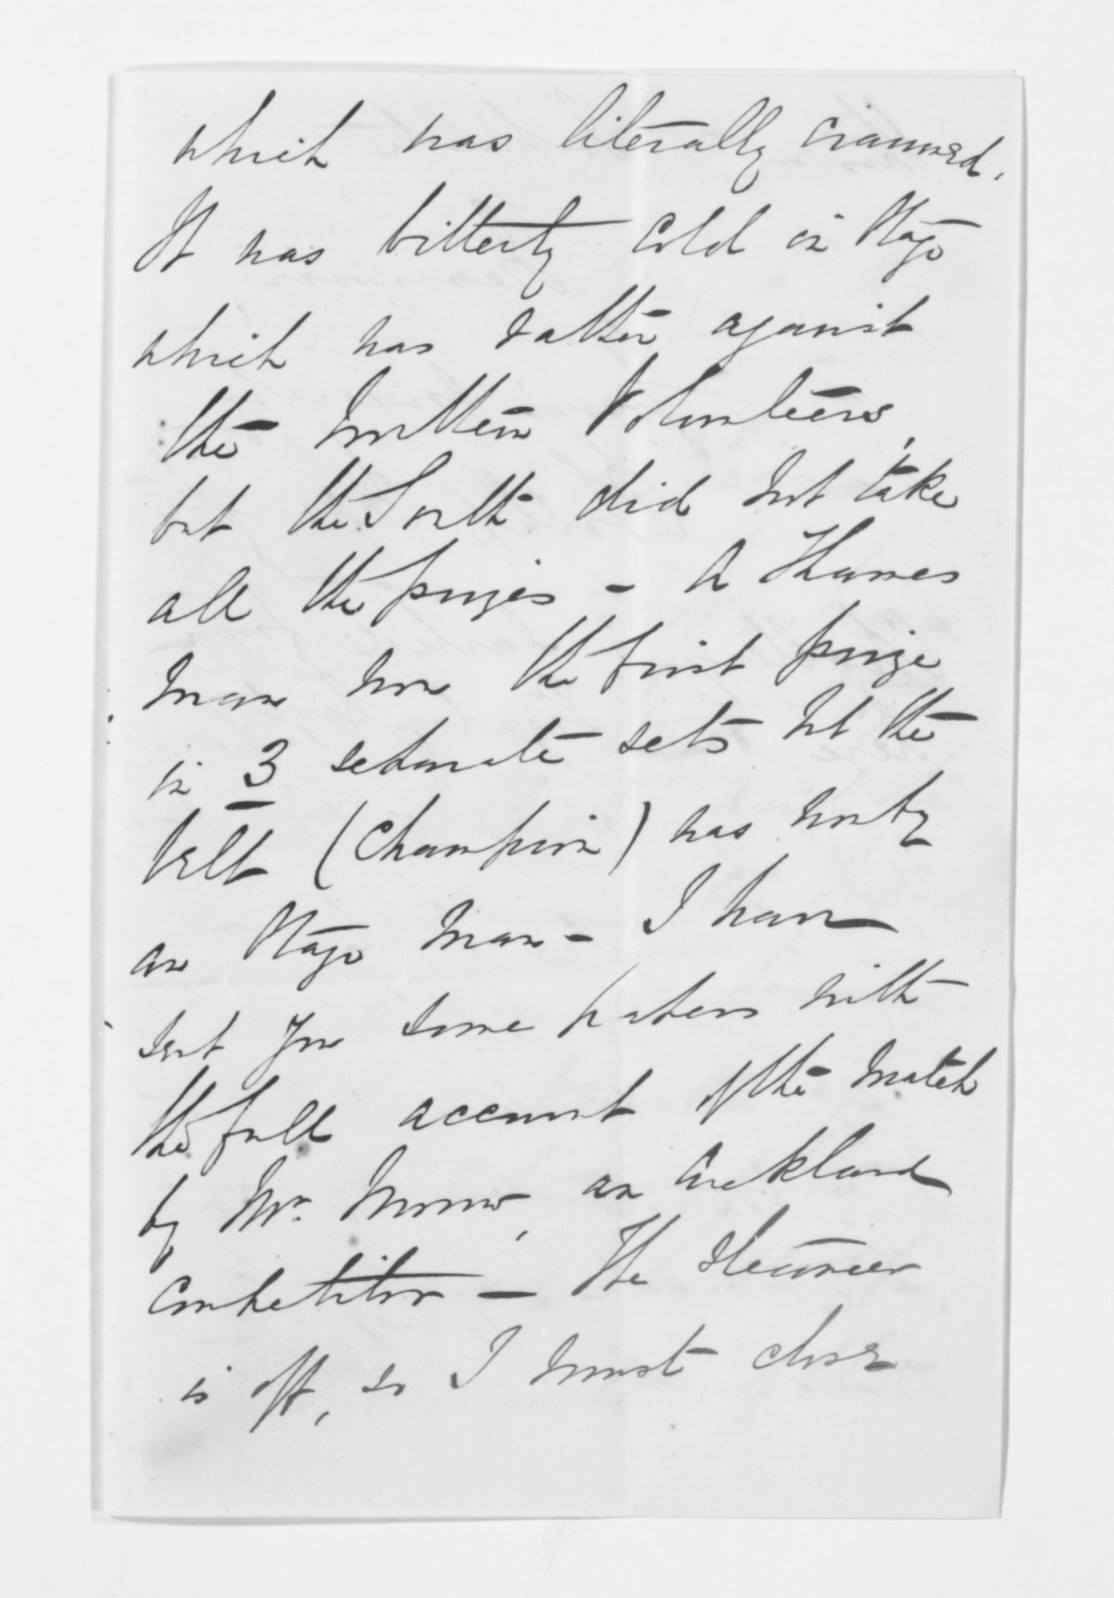 which was literally crammed.
It was bitterly cold in Otago
which was rather against
the Northern Volunteers,
but the South did not take
all the prizes - A Thames
man won the first prize
in 3 separate sets but the
belt (Champion) was won by
an Otago man - I have
sent you some papers with
the full account of the match
by Mr. Morrow, an Auckland
Competitor - The steamer
is off, so I must close